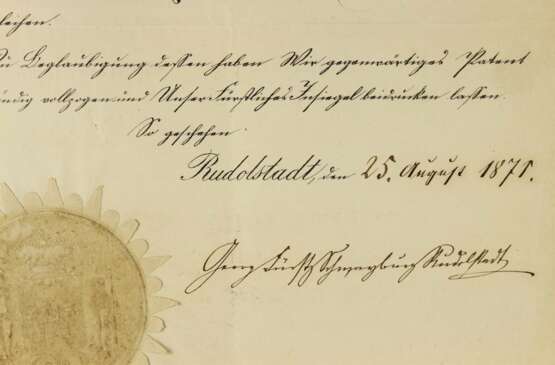 leihen.
Zu Beglaubigung dessen haben Wir gegenwärtiges Patent
händig vollzogen und Unser Fürstliches Insiegel beidrucken lassen.
So geschehen
Rudolstadt, den 25. August 1871.
Georg Fürst z Schwarzburg Rudolstadt